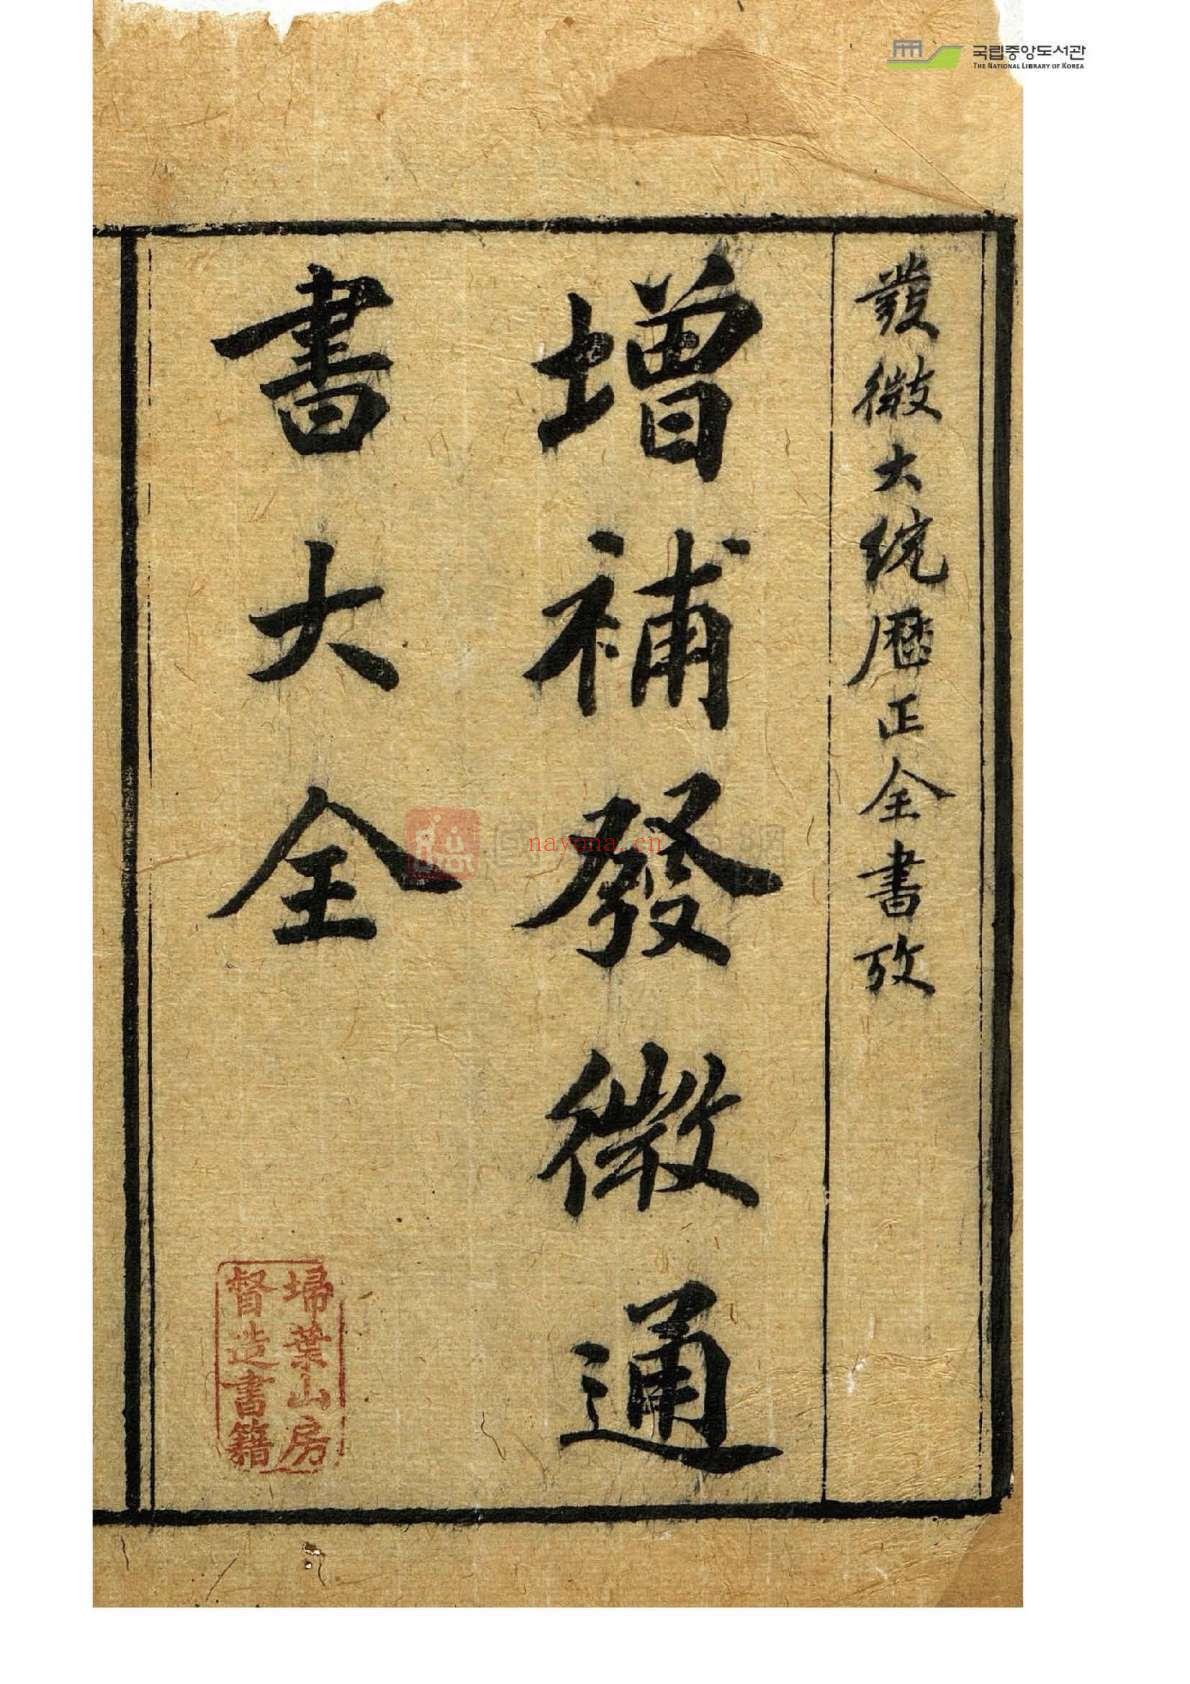 국립중앙도서관
THE NATIONAL LIBRARY OF KOREA
發微大統曆正全書攷
增補發微通
書大全
埽葉山房
督造書籍
國
nayona.cn